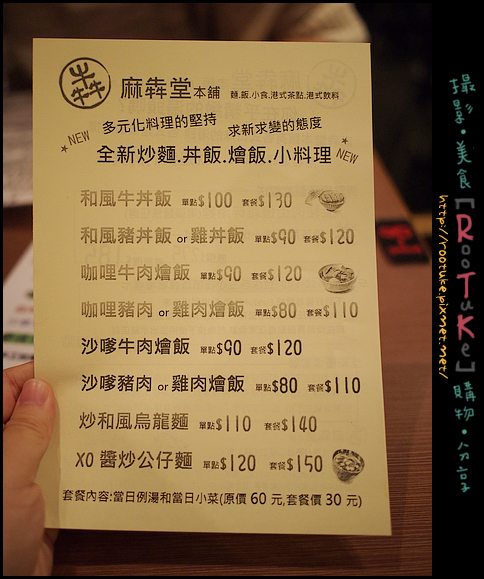 犇
麻犇堂本舖 麵.飯.小食.港式茶點.港式飲料
NEW 多元化料理的堅持 求新求變的態度
全新炒麵.丼飯.燴飯.小料理 NEW
和風牛丼飯 單點$100 套餐$130
和風豬丼飯 or 雞丼飯 單點$90 套餐$120
咖哩牛肉燴飯 單點$90 套餐$120
咖哩豬肉 or 雞肉燴飯 單點$80 套餐$110
沙嗲牛肉燴飯 單點$90 套餐$120
沙嗲豬肉 or 雞肉燴飯 單點$80 套餐$110
炒和風烏龍麵 單點$110 套餐$140
XO 醬炒公仔麵 單點$120 套餐$150
套餐內容:當日例湯和當日小菜(原價 60 元,套餐價 30 元)
攝影・美食【RooTuKe】購物・分享
http://rootuke.pixnet.net/